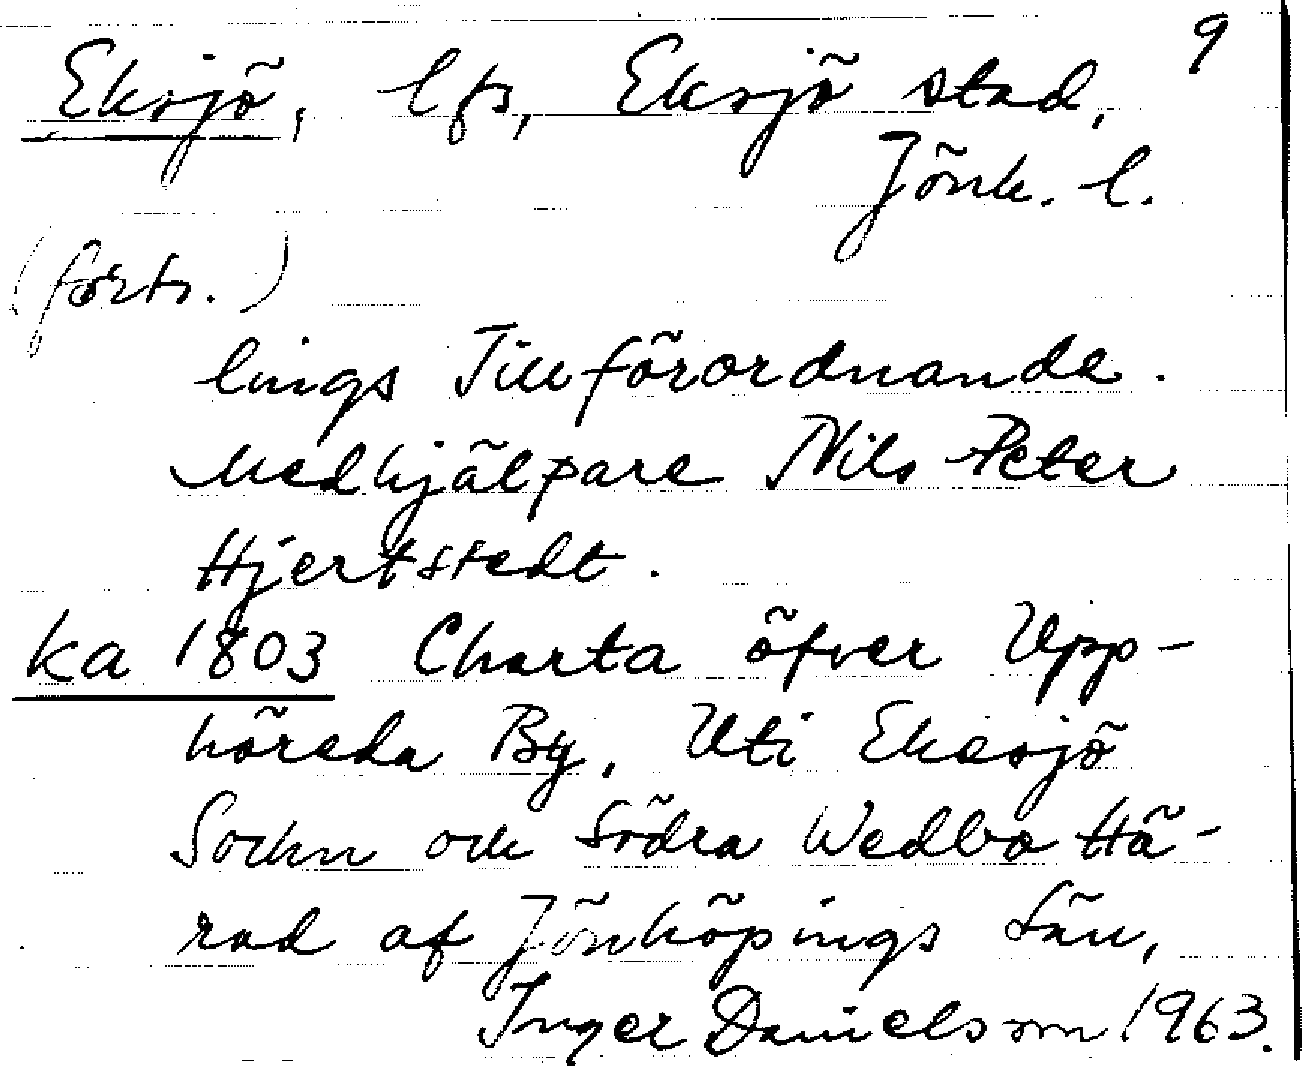 9
Eksjö, lfs, Eksjö stad,
Jönk. l.
(forts.)
lings Tillförordnande.
Medhjälpare Nils Peter
Hjertstedt.
ka 1803 Charta öfver Upp-
höreda By, Uti Ekesjö
Sockn och Södra Wedbo Hä-
rad af Jönköpings Län,
Inger Danielsson 1963.